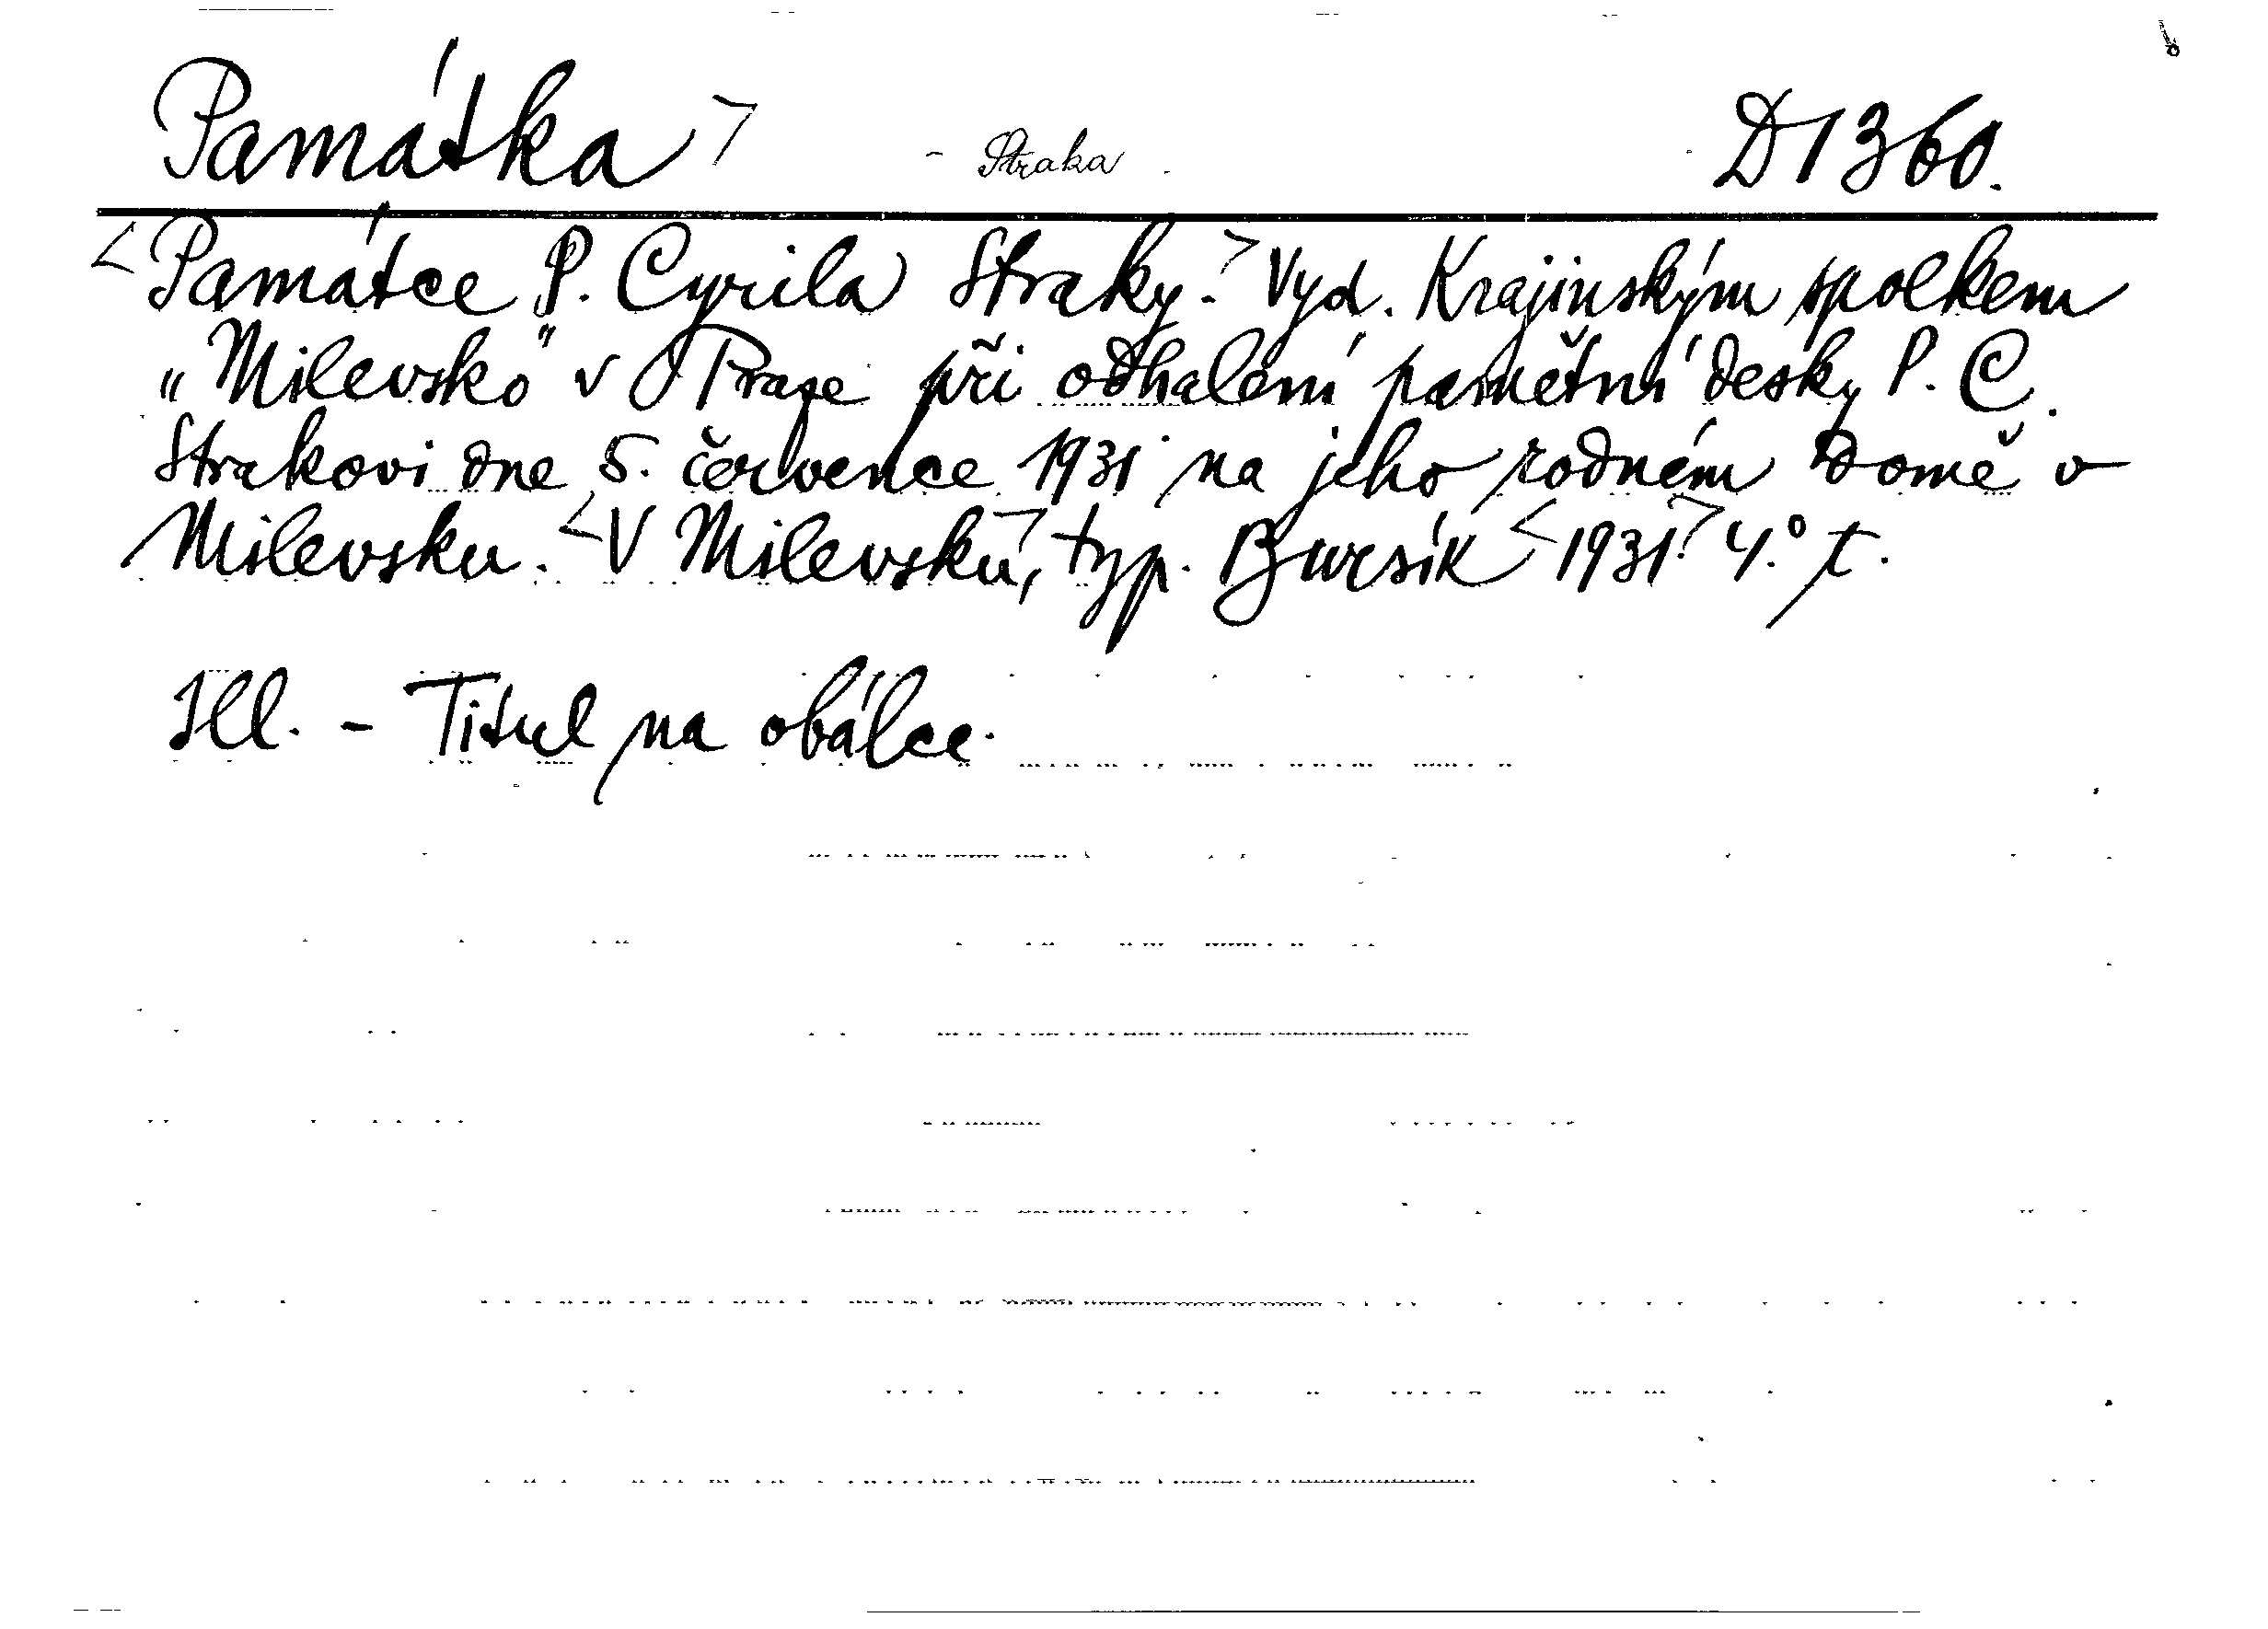 Památka > - Straka D 1360.
<Památce P. Cyrila Straky.> Vyd. Krajinským spolkem
„Milevsko" v Praze při odhalení pamětní desky P. C.
Strakovi dne 5. července 1931 na jeho rodném domě v
Milevsku. <V Milevsku>, typ. Bursík <1931>. 4.° t.
Ill. - Titul na obálce.